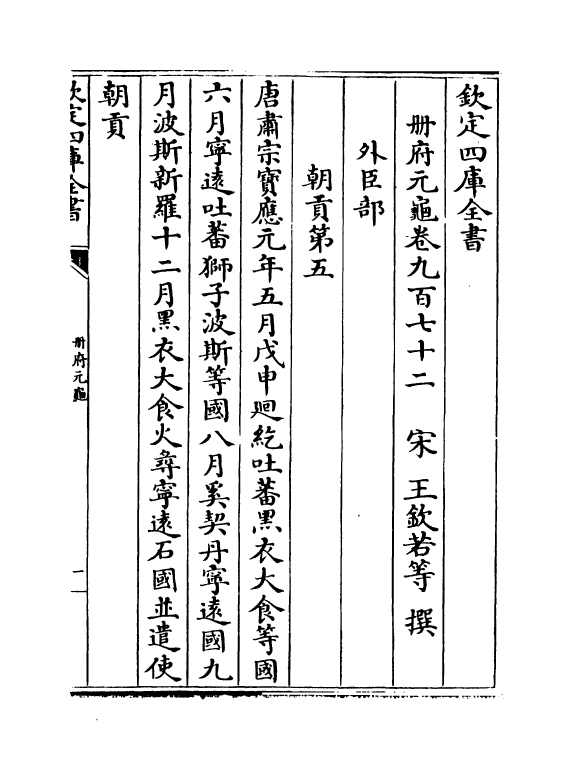 欽定四庫全書
冊府元龜卷九百七十二　宋　王欽若等　撰
外臣部
朝貢第五
唐肅宗寶應元年五月戊申廻紇吐蕃黑衣大食等國
六月寧遠吐蕃獅子波斯等國八月奚契丹寧遠國九
月波斯新羅十二月黑衣大食火尋寧遠石國並遣使
朝貢
欽定四庫全書
冊府元龜